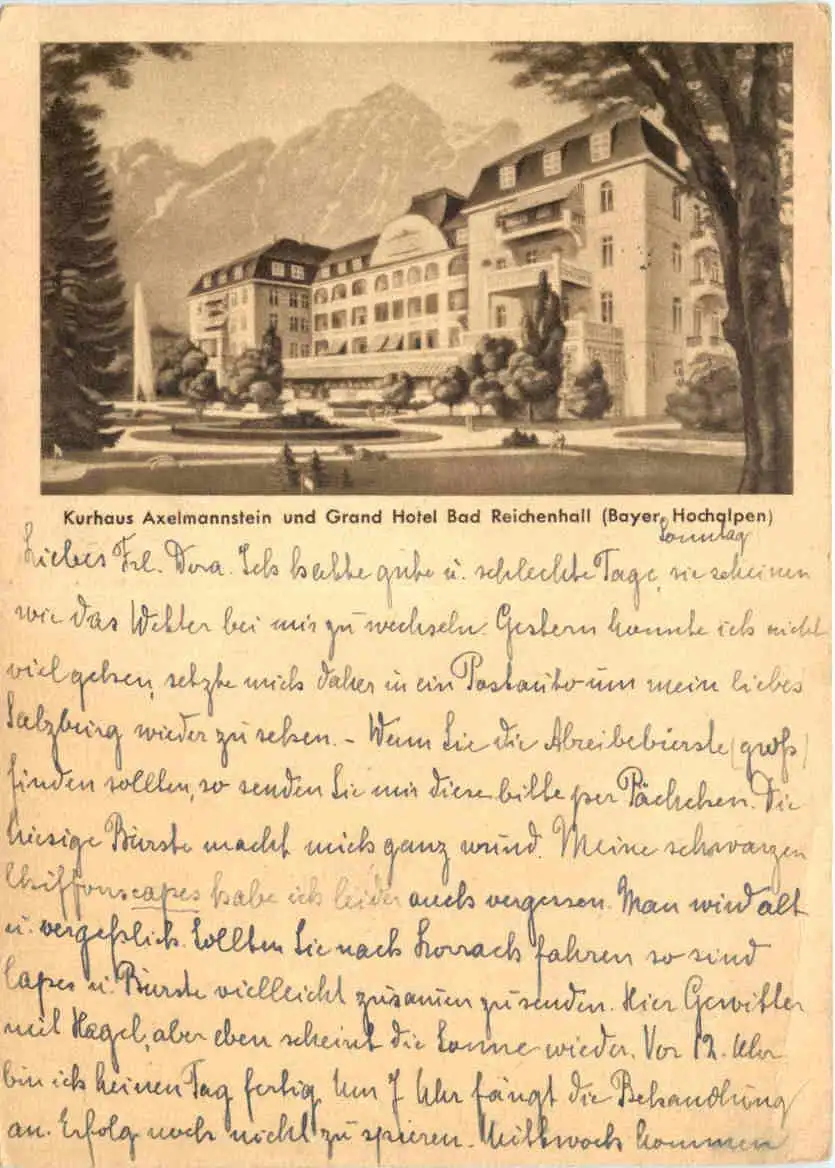 Kurhaus Axelmannstein und Grand Hotel Bad Reichenhall (Bayer. Hochalpen)
Sonntag
Liebes Frl. Dora. Ich hatte gute u. schlechte Tage, sie scheinen
wie das Wetter bei mir zu wechseln. Gestern konnte ich nicht
viel gehen, setzte mich daher in ein Postauto um mein liebes
Salzburg wieder zu sehen. – Wenn Sie die Abreibebürste (groß)
finden sollten, so senden Sie mir diese bitte per Päckchen. Die
hiesige Bürste macht mich ganz wund. Meine schwarzen
Chiffonscapes habe ich leider auch vergessen. Man wird alt
u. vergeßlich. Sollten Sie nach fahren so sind
Capes u. Bürste vielleicht zusamen zu senden. Hier Gewitter
mit Hagel, aber eben scheint die Sonne wieder. Vor 12. Uhr
bin ich keinen Tag fertig. Um 7 Uhr fängt die Behandlung
an. Erfolg noch nicht zu spüren. Mittwoch kommen